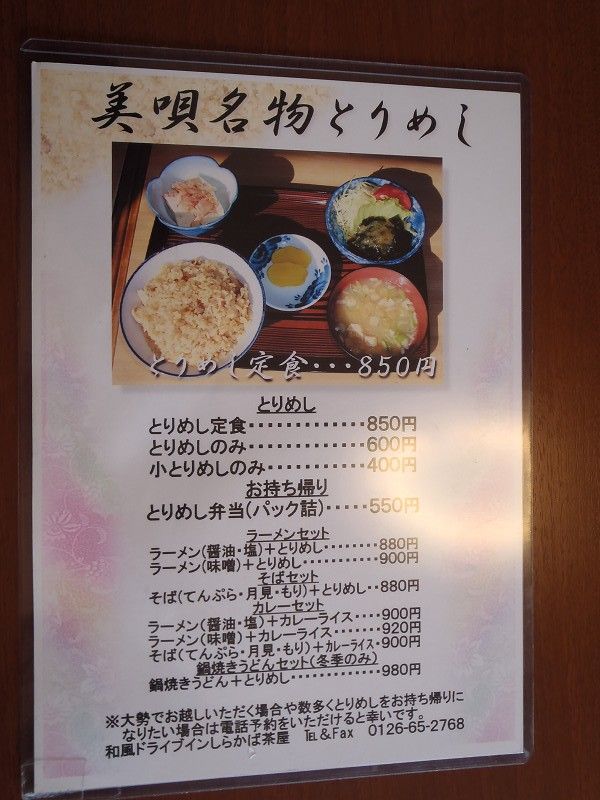 美唄名物とりめし
とりめし定食・・・850円
とりめし
とりめし定食・・・・・・・・・・・・・850円
とりめしのみ・・・・・・・・・・・・・600円
小とりめしのみ・・・・・・・・・・・400円
お持ち帰り
とりめし弁当(パック詰)・・・・・550円
ラーメンセット
ラーメン(醤油・塩)+とりめし・・・・・・・880円
ラーメン(味噌)+とりめし・・・・・・・・・・900円
そばセット
そば(てんぷら・月見・もり)+とりめし・・880円
カレーセット
ラーメン(醤油・塩)+カレーライス・・・・900円
ラーメン(味噌)+カレーライス・・・・・920円
そば(てんぷら・月見・もり)+カレーライス・900円
鍋焼きうどんセット(冬季のみ)
鍋焼きうどん+とりめし・・・・・・・・・・・・980円
※大勢でお越しいただく場合や数多くとりめしをお持ち帰りに
なりたい場合は電話予約をいただけると幸いです。
和風ドライブインしらかば茶屋 ℡&Fax 0126-65-2768